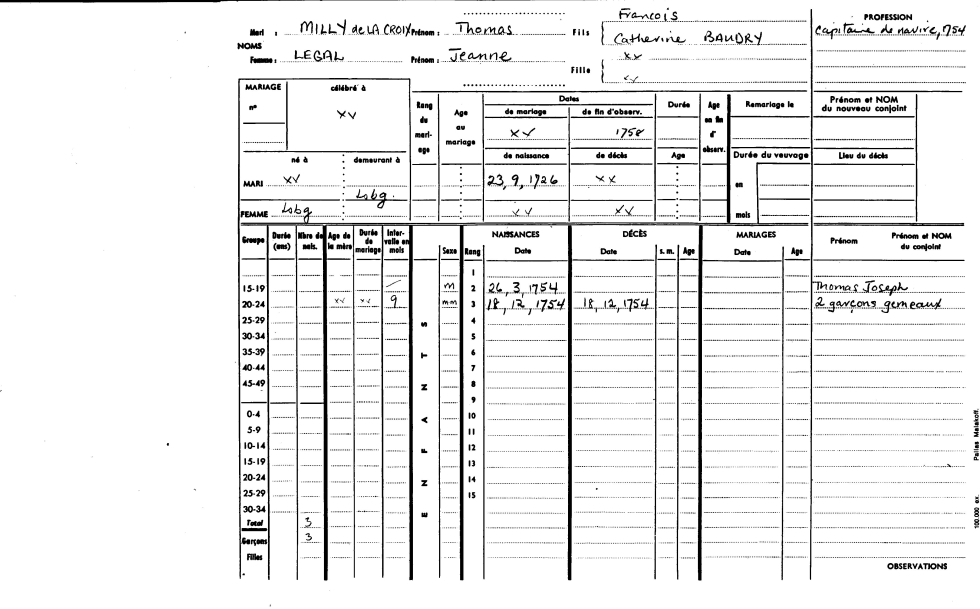 Mari : MILLY de LA CROIX Prénom : Thomas Fils { François
Catherine BAUDRY
PROFESSION
Capitaine de navire, 1754
NOMS
Femme : LEGAL Prénom : Jeanne Fille { xx
xx
MARIAGE célébré à
n° xv
né à demeurant à
MARI xv Lsbg.
FEMME Lsbg
Rang du mari-age
Age au mariage
Dates
de mariage de fin d'observ.
xv 1758
de naissance de décès
23, 9, 1726 xx
xv xv
Durée
Age
Age en fin d' observ.
Remariage le
Durée du veuvage
en
mois
Prénom et NOM du nouveau conjoint
Lieu du décès
Groupe Durée (ans) Nbre de nais. Age de la mère Durée de mariage Inter-valle en mois Sexe Rang NAISSANCES Date DÉCÈS Date s. m. Age MARIAGES Date Age Prénom Prénom et NOM du conjoint
ENFANTS
1
15-19 m 2 26, 3, 1754 Thomas Joseph
20-24 xx xx 9 mm 3 18, 12, 1754 18, 12, 1754 2 garçons gemeaux
25-29 4
30-34 5
35-39 6
40-44 7
45-49 8
9
0-4 10
5-9 11
10-14 12
15-19 13
20-24 14
25-29 15
30-34
Total 3
Garçons 3
Filles
OBSERVATIONS
100.000 ex. Pailles Malakoff.